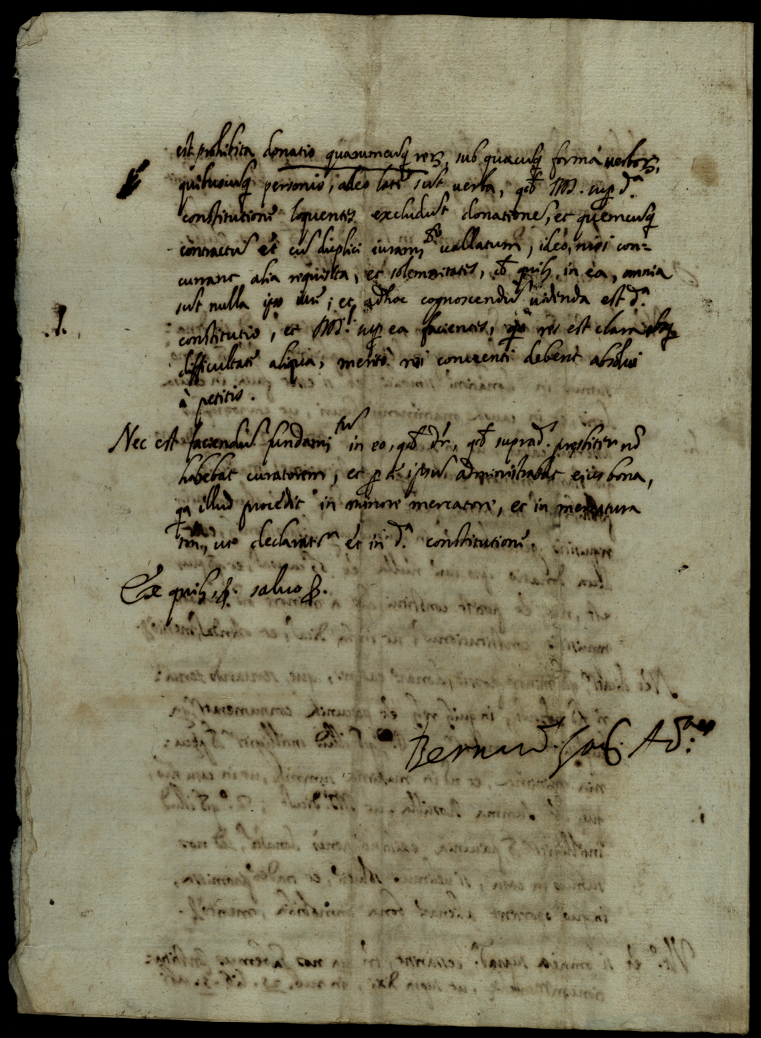 est prohibita donatio quarumcusq rerz, sub quacusq forma verborz,
quibuscusq personis, adeo late sut verba, qd DD. sup d.ª
constitutione loquentes excludut donationes, et quemcusq
contractus et cus duplici iuram.to vallatum, ideo, nisi con=
currant alia requisita, et solemnitates, de quib, in ea, omnia
sut nulla ipso iure; et adhoc cognoscendus videnda est d.ª
constitutio, et DD. sup ea facientes, res est clara absq
difficultate aliqua, merito rei conventi debent absolui
à petitis.
Nec est faciendus fundam.tus in eo, qd dr, qd suprad. no
habebat curatorem, et p se ipsus administrabat eius bona,
qa illud procedit in minore mercatore, et in mercatura
tm, ut declarat et in d.ª constitutione.
Ex quib salvo
Bernard.